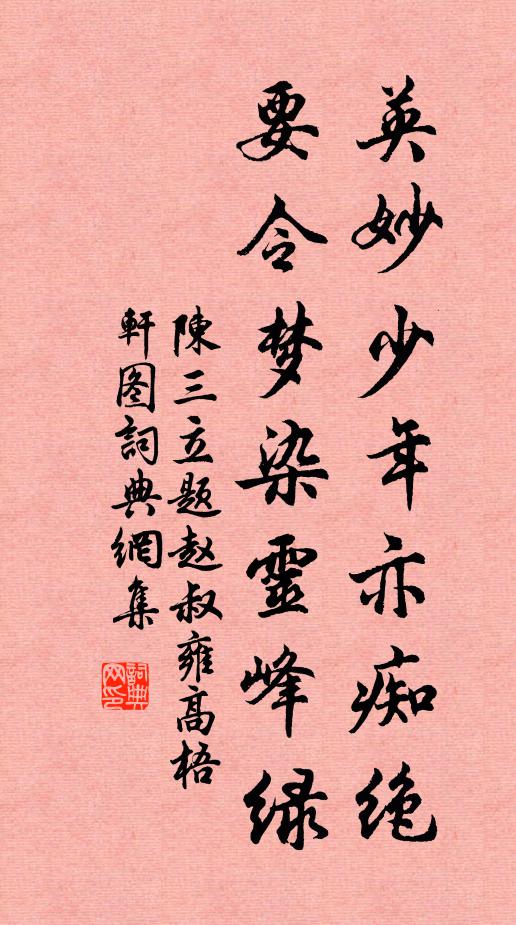 英妙少年亦痴绝
要令梦染靈峰绿
陳三立题赵叔雍高梧
軒图詞典網集
詞典网印